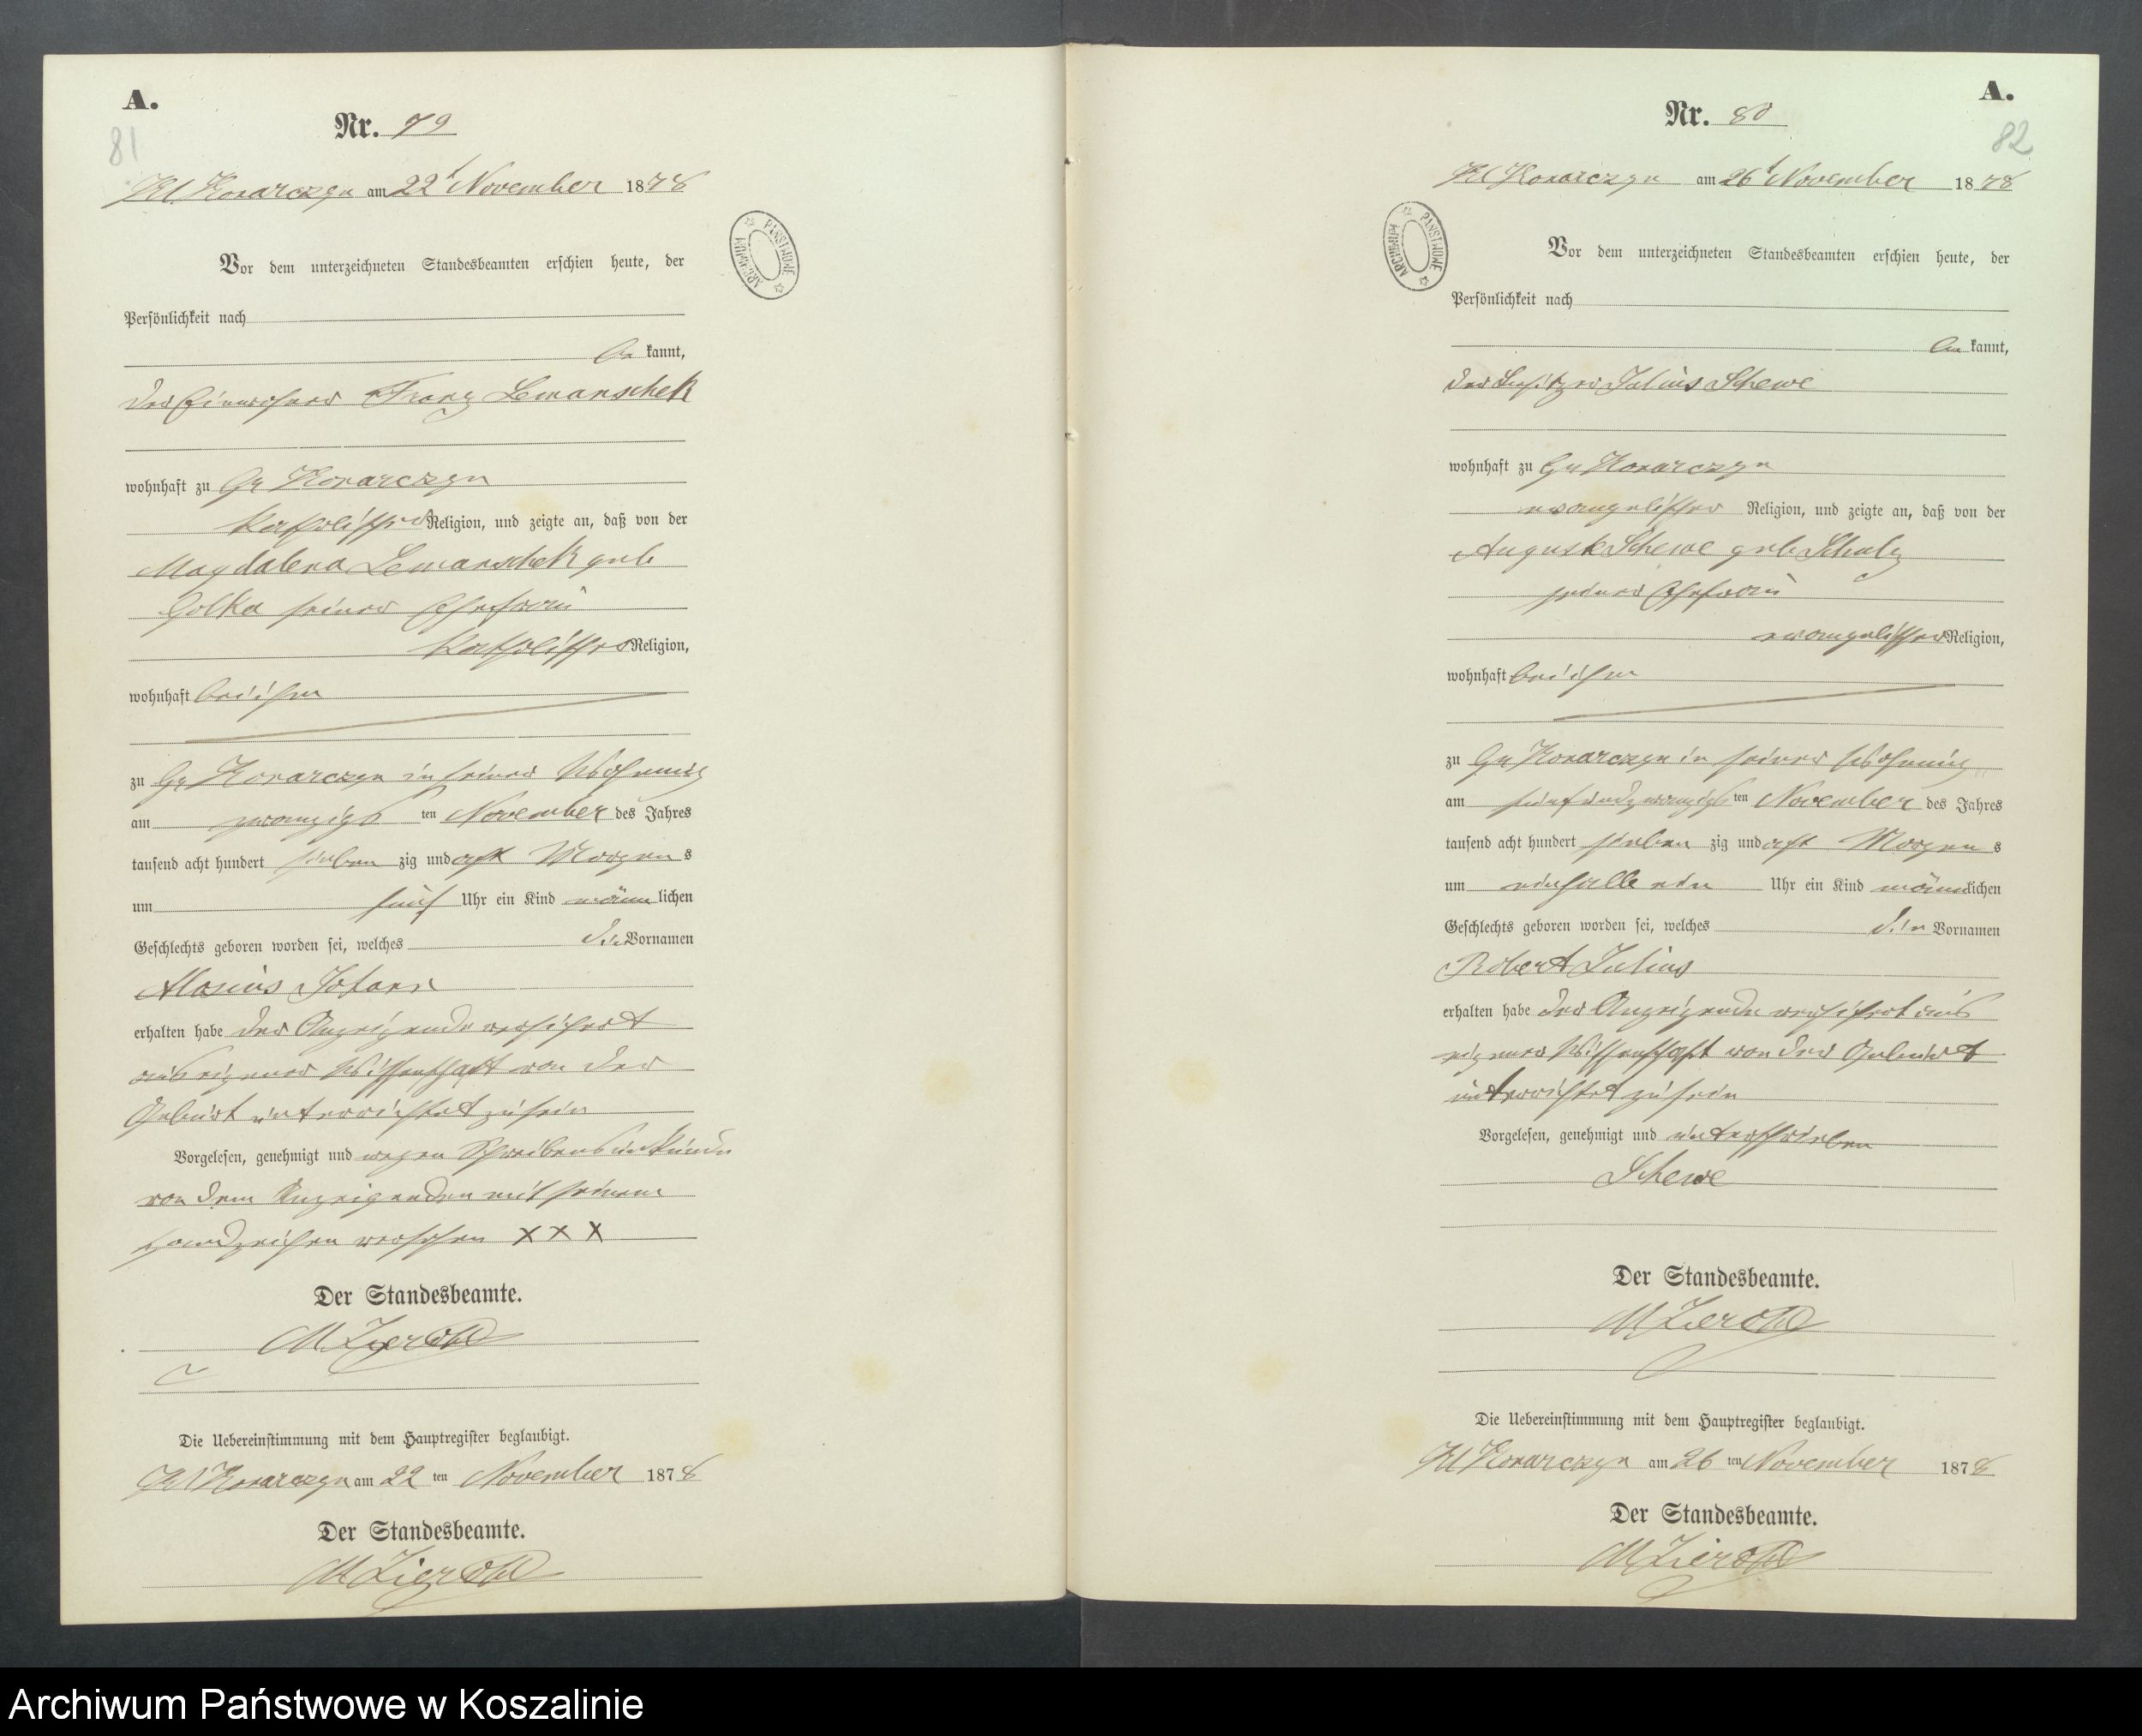 A.
81
Nr. 79
Kl. Konarczyn am 22t November 1878
ARCHIWUM PAŃSTWOWE
Vor dem unterzeichneten Standesbeamten erschien heute, der
Persönlichkeit nach
be kannt,
der Einwohner Franz Lemanschek
wohnhaft zu Gr Konarczyn
katholischer Religion, und zeigte an, daß von der
Magdalena Lemanschek geb
Golka seiner Ehefrau
katholischer Religion,
wohnhaft bei ihm
zu Gr Konarczyn in seiner Wohnung
am zwanzigs ten November des Jahres
tausend acht hundert sieben zig und acht Morgen s
um fünf Uhr ein Kind männ lichen
Geschlechts geboren worden sei, welches die Vornamen
Alosius Johann
erhalten habe der Anzeigende versichert
aus eigener Wissenschaft von der
Geburt unterrichtet zu sein
Vorgelesen, genehmigt und wegen Schreibensunkunde
von dem Anzeigenden mit seinem
Handzeichen versehen X X X
Der Standesbeamte.
M Zieroth
Die Uebereinstimmung mit dem Hauptregister beglaubigt.
Kl Konarczyn am 22 ten November 1878
Der Standesbeamte.
M Zieroth
A.
82
Nr. 80
Kl Konarczyn am 26t November 1878
ARCHIWUM PAŃSTWOWE
Vor dem unterzeichneten Standesbeamten erschien heute, der
Persönlichkeit nach
be kannt,
der Besitzer Julius Schewe
wohnhaft zu Gr Konarczyn
evangelischer Religion, und zeigte an, daß von der
August Schewe geb Schulz
seiner Ehefrau
evangelischer Religion,
wohnhaft bei ihm
zu Gr Konarczyn in seiner Wohnung
am fünfundzwanzigs ten November des Jahres
tausend acht hundert sieben zig und acht Morgen s
um einhalb ein Uhr ein Kind männlichen
Geschlechts geboren worden sei, welches die Vornamen
Robert Julius
erhalten habe der Anzeigende versichert aus
eigener Wissenschaft von der Geburt
unterrichtet zu sein
Vorgelesen, genehmigt und unterschrieben
Schewe
Der Standesbeamte.
M Zieroth
Die Uebereinstimmung mit dem Hauptregister beglaubigt.
Kl Konarczyn am 26 ten November 1878
Der Standesbeamte.
M Zieroth
Archiwum Państwowe w Koszalinie